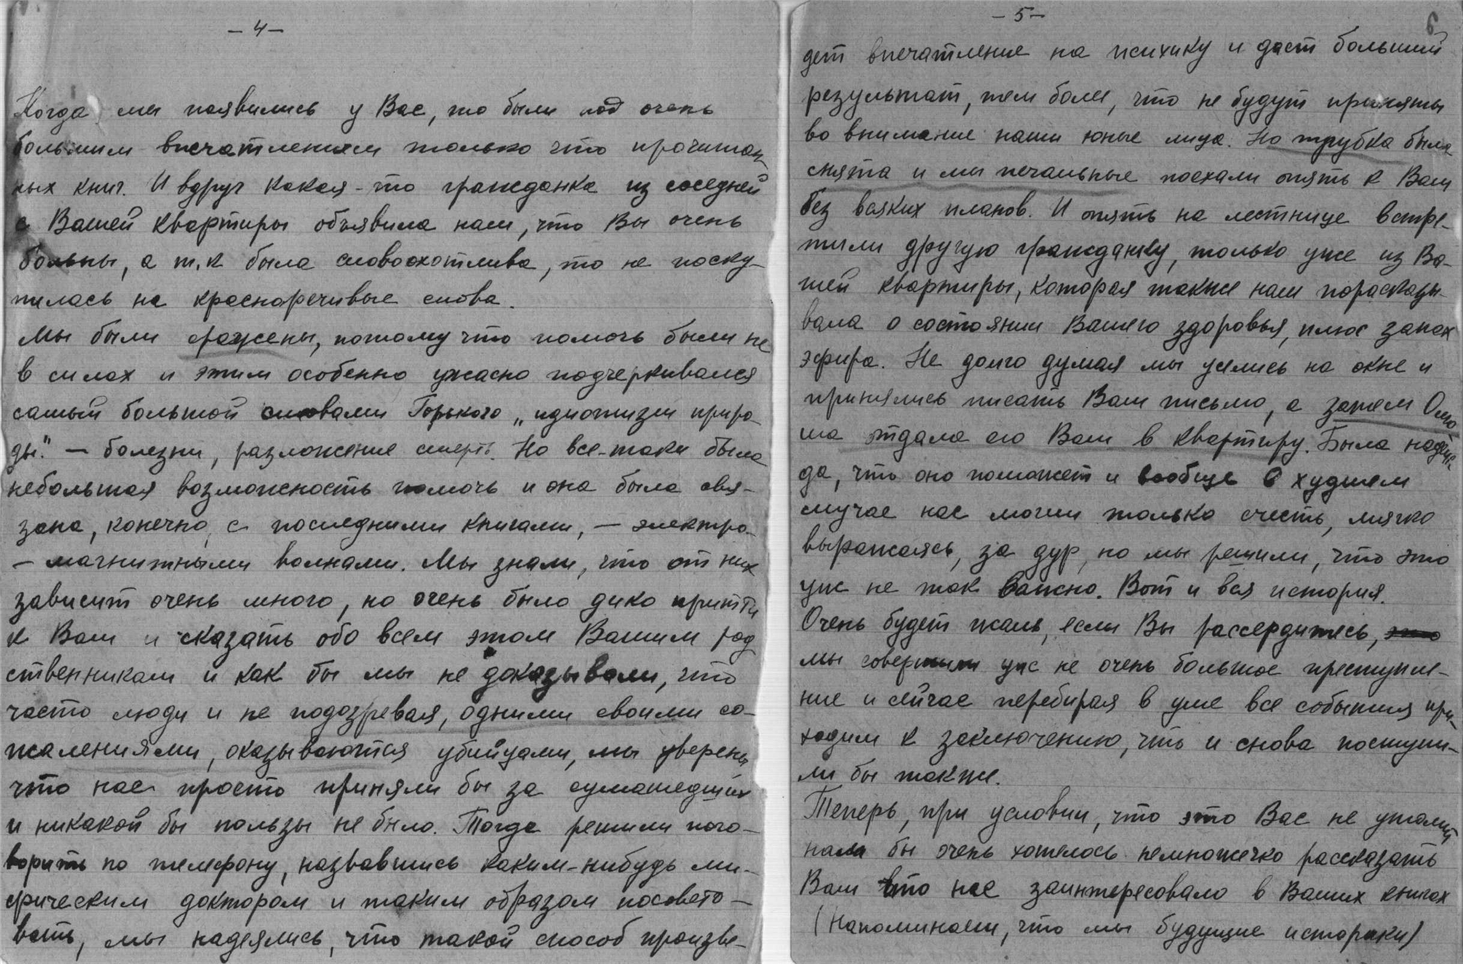 – 4 –
Когда мы появились у Вас, то были под очень
большим впечатлением только что прочитан-
ных книг. И вдруг какая-то гражданка из соседней
с Вашей квартиры объявила нам, что Вы очень
больны, а т.к была словоохотлива, то не поску-
пилась на красноречивые слова.
Мы были сражены, потому что помочь были не
в силах и этим особенно ужасно подчеркивался
самый большой словами Горького „идиотизм приро-
ды." – болезни, разложение смерть. Но все-таки была
небольшая возможность помочь и она была свя-
зана, конечно, с последними книгами, – электро-
– магнитными волнами. Мы знали, что от них
зависит очень много, но очень было дико притти
к Вам и сказать обо всем этом Вашим род
ственникам и как бы мы не доказывали, что
часто люди и не подозревая, одними своими со-
жалениями, оказываются убийцами, мы уверены
что нас просто приняли бы за сумашедших
и никакой бы пользы не было. Тогда решили пого-
ворить по телефону, назвавшись каким-нибудь ми-
фическим доктором и таким образом посовето-
вать, мы надеялись, что такой способ произве-
– 5 –
6
дет впечатление на психику и даст больший
результат, тем более, что не будут приняты
во внимание наши юные лица. Но трубка была
снята и мы печальные поехали опять к Вам
без всяких планов. И опять на лестнице встре-
тили другую гражданку, только уже из Ва-
шей квартиры, которая также нам порасказы-
вала о состоянии Вашего здоровья, плюс запах
эфира. Не долго думая мы уселись на окне и
принялись писать Вам письмо, а затем
отдала его Вам в квартиру. Была надеж-
да, что оно поможет и вообще в худшем
случае нас могли только счесть, мягко
выражаясь, за дур, но мы решили, что это
уж не так важно. Вот и вся история.
Очень будет жаль, если Вы рассердитесь, это
мы совершили уж не очень большое преступле-
ние и сейчас перебирая в уме все события при-
ходим к заключению, что и снова поступи-
ли бы также.
Теперь, при условии, что это Вас не утомит
нам бы очень хотелось немножечко рассказать
Вам что нас заинтересовало в Ваших книгах
(Напоминаем, что мы будущие историки)